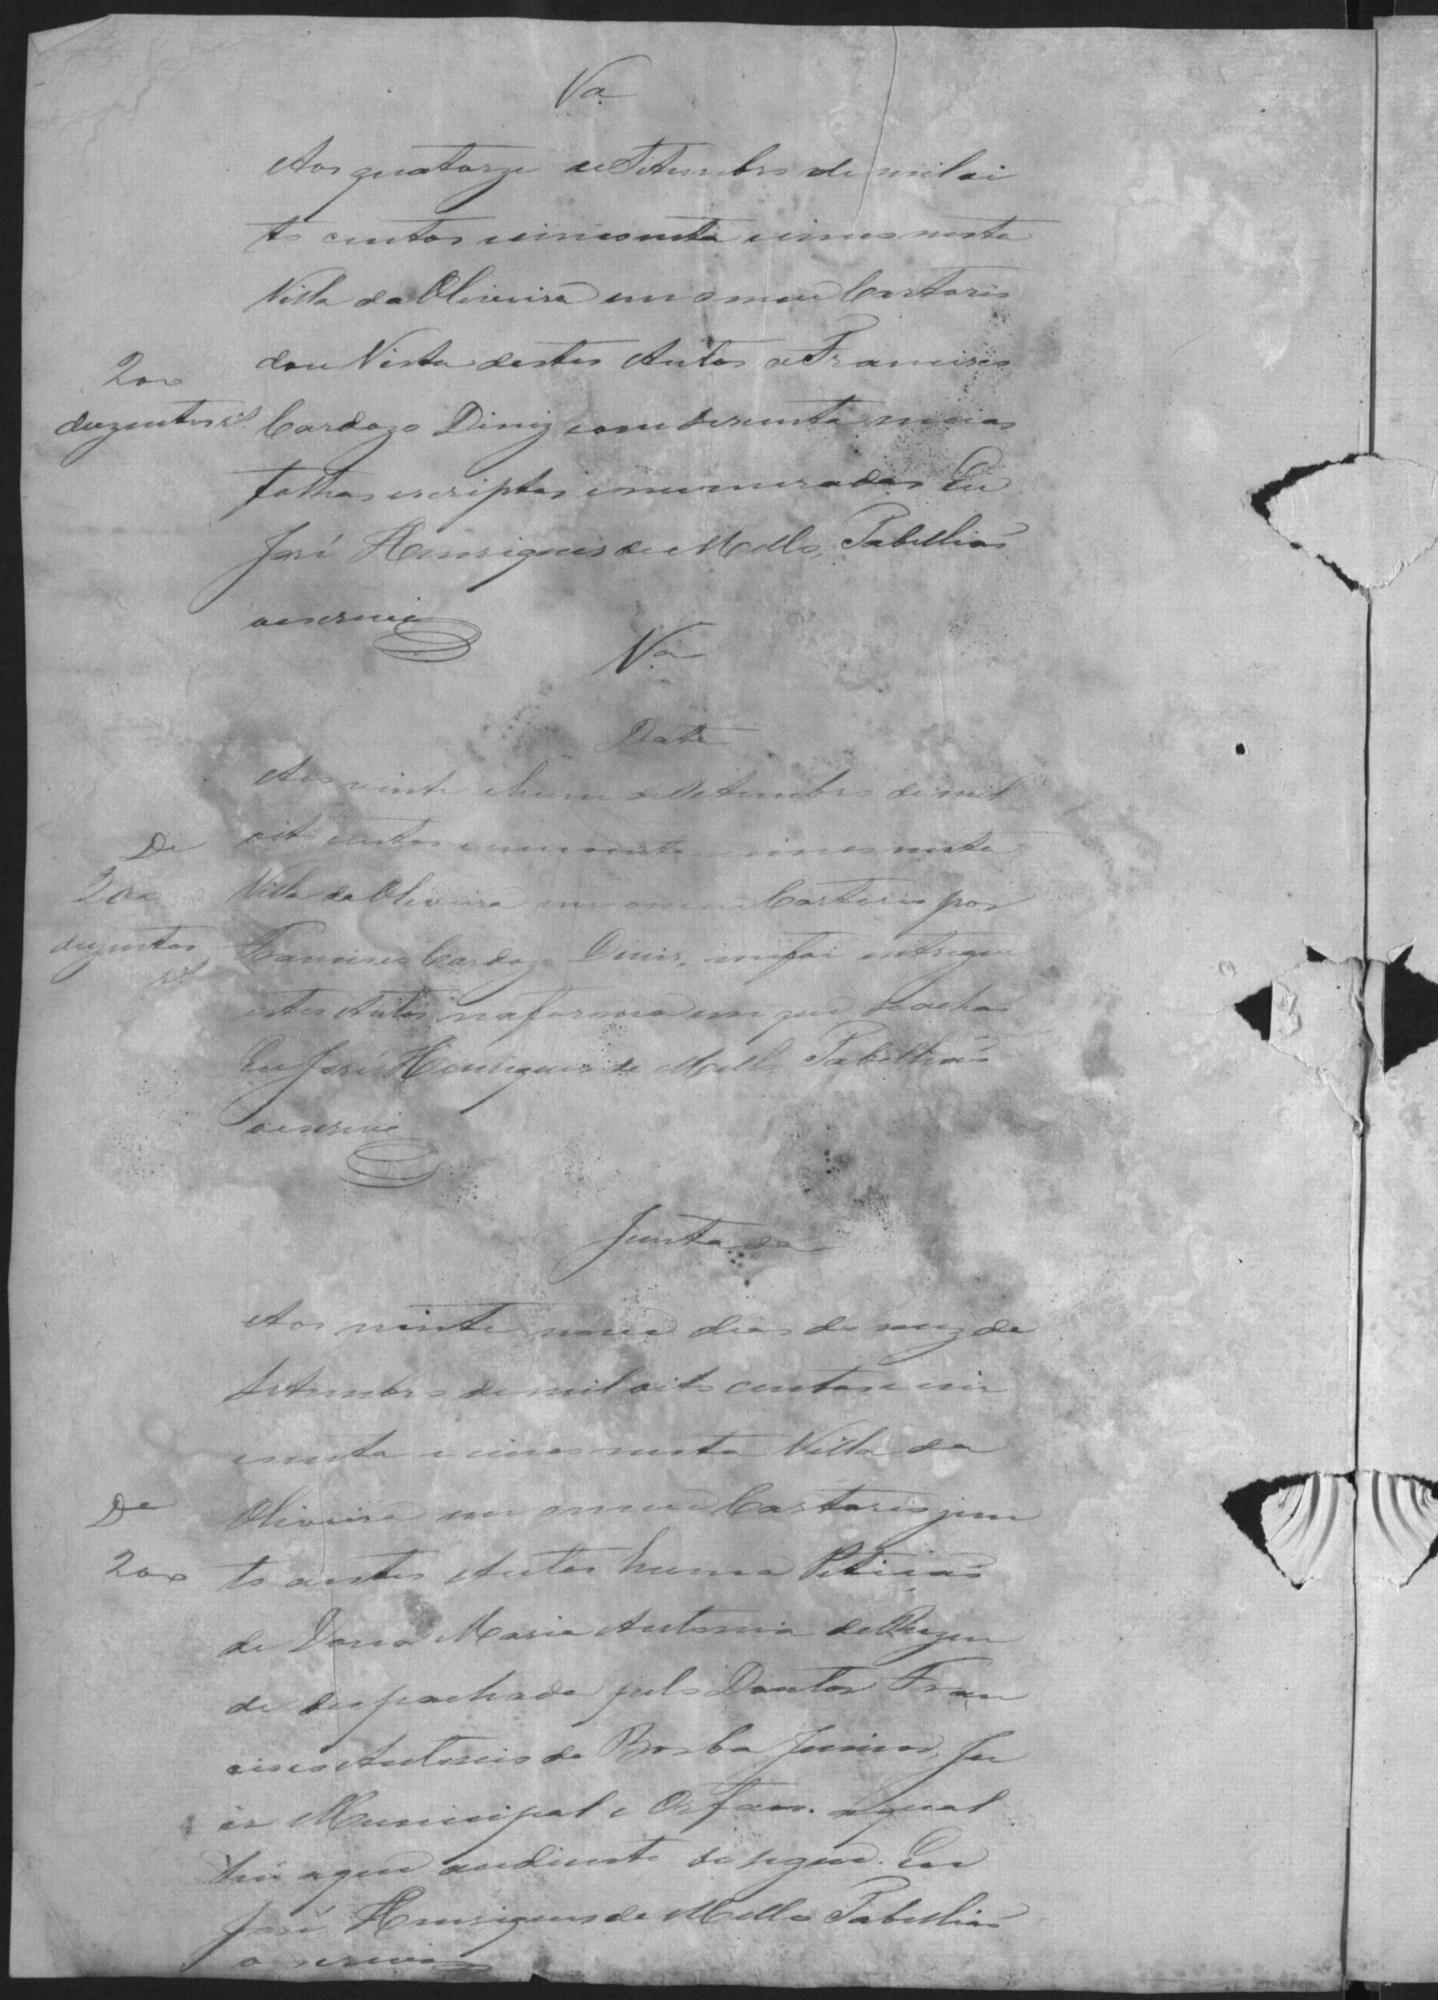 Va
Aos quatorze de Setembro de mil oi
to centos e cincoenta e cinco nesta
Villa da Oliveira em o meu Cartorio
dou Vista destes Autos a Francisco
200
duzentos rs
Cardozo Diniz com secenta meias
folhas escriptas e numeradas Eu
José Henriques de Mello, Tabellião
o escrevi
Va
Data
Aos vinte e hum de Setembro de mil
oito centos e cincoenta e cinco nesta
De
Villa da Oliveira em o meu Cartorio por
200
Francisco Cardozo Dinis, me foi entregue
duzentos
rs
estes Autos na forma em que se acha
Eu José Henriques de Mello Tabellião
o escrevi
Juntada
Aos vinte nove dias do mez de
Setembro de mil oito centos e cin
coenta e cinco nesta Villa da
De
Oliveira em o meu Cartorio jun
200
to a estes Autos huma Petição
de Dona Maria Antonia de Rezen
de despachada pelo Doutor Fran
cisco Antonio de Borba Junior, Ju
iz Municipal e Orfãos. a qual
hé a que audiante se segue. Eu
José Henriques de Mello Tabellião
o escrevi